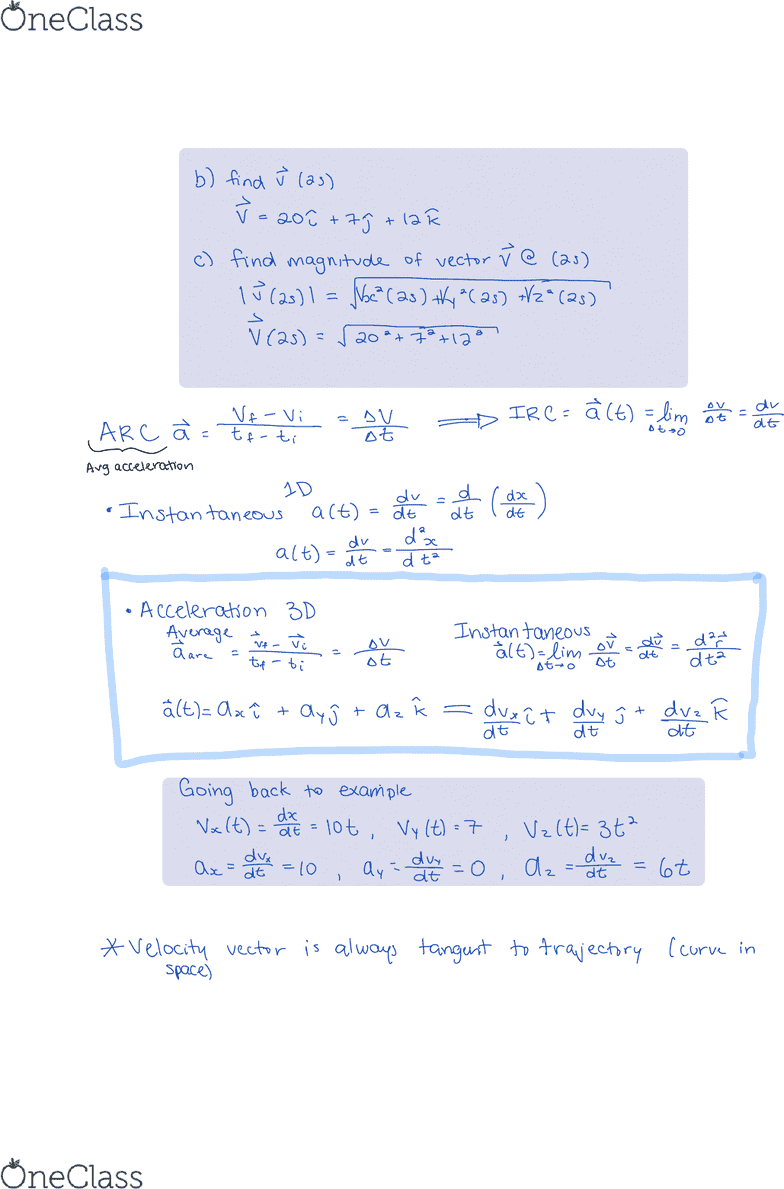 OneClass
b) find v⃗ (2s)
V⃗ = 20î + 7ĵ + 12k̂
c) find magnitude of vector V⃗ @ (2s)
|v⃗(2s)| = √Vx²(2s) + Vy²(2s) + Vz²(2s)
V⃗(2s) = √20² + 7² + 12²
ARC a⃗ = (Vf - Vi)/(tf - ti) = ΔV/Δt ⟹ IRC = a⃗(t) = lim Δt→0 ΔV/Δt = dv/dt
Avg acceleration
• Instantaneous 1D a(t) = dv/dt = d/dt (dx/dt)
a(t) = dv/dt = d²x/dt²
• Acceleration 3D
Average Instantaneous
a⃗arc = (v⃗f - v⃗i)/(tf - ti) = ΔV/Δt a⃗(t) = lim Δt→0 ΔV⃗/Δt = dv⃗/dt = d²r⃗/dt²
a⃗(t) = axî + ayĵ + az k̂ = dvx/dt î + dvy/dt ĵ + dvz/dt k̂
Going back to example
Vx(t) = dx/dt = 10t , Vy(t) = 7 , Vz(t) = 3t²
ax = dvx/dt = 10 , ay = dvy/dt = 0 , az = dvz/dt = 6t
* Velocity vector is always tangent to trajectory (curve in
space)
OneClass